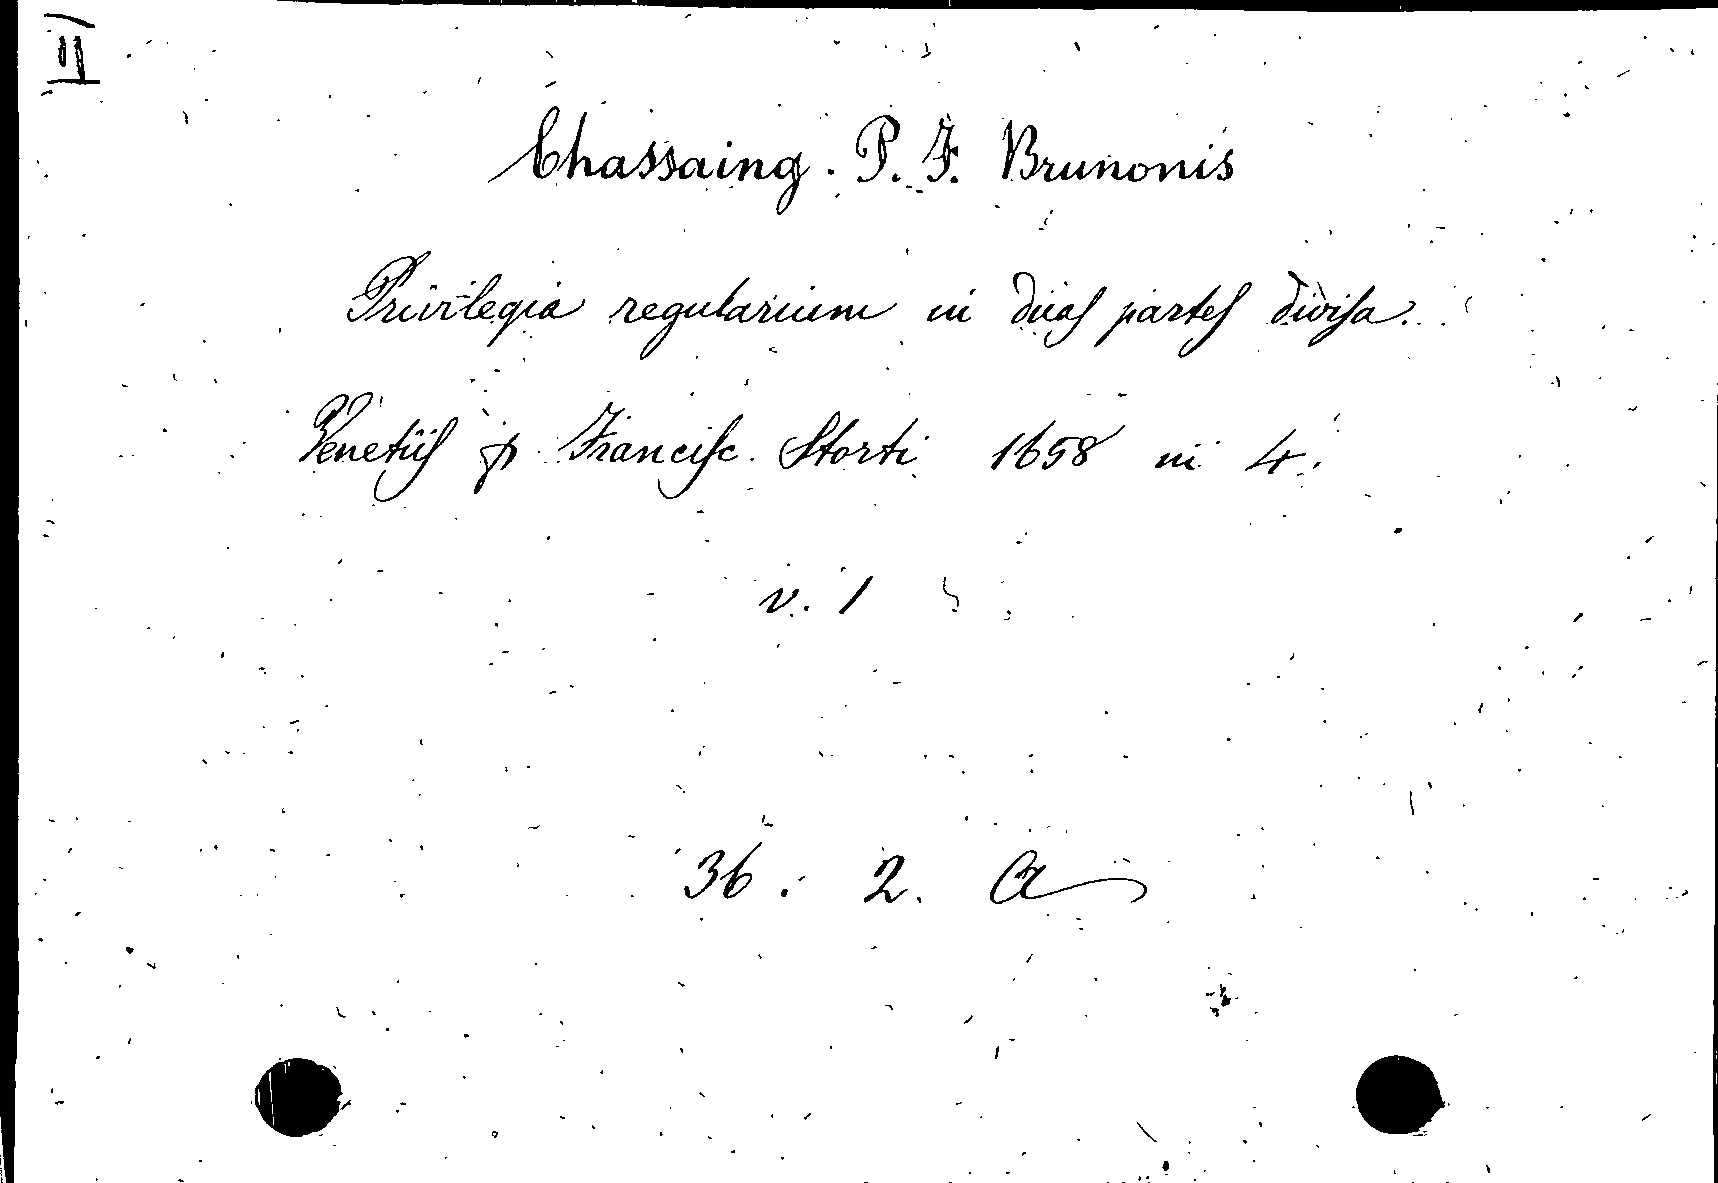 II
Chassaing. P. F. Brunonis
Privilegia regularium in duas partes divisa.
Venetiis p Francisc. Storti 1658 in 4.
v. 1
36. 2. A